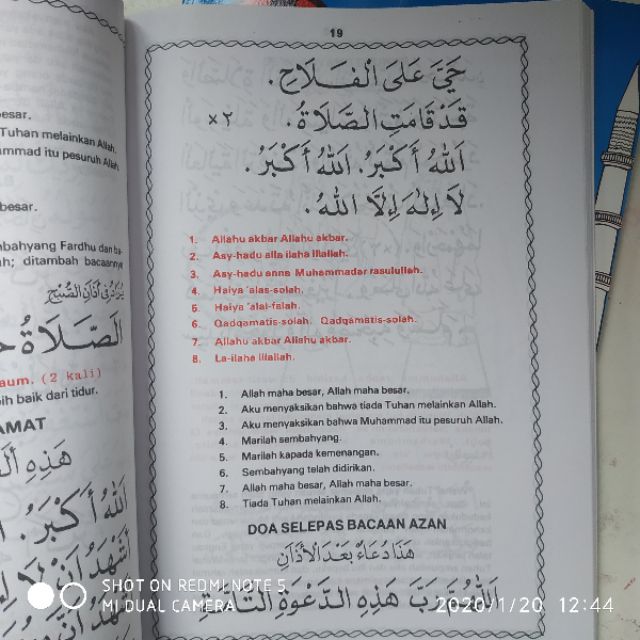 esar.
Tuhan melainkan Allah.
ammad itu pesuruh Allah
besar.
mbahyang Fardhu dan ba-
ah; ditambah bacaannya
الصَّلَاةُ
aum. (2 kali)
bih baik dari tidur.
AMAT
هَذِهِ
اَللهُ أَكْبَرُ.
19
حَيَّ عَلَى الْفَلَاحِ.
قَدْ قَامَتِ الصَّلَاةُ. ×٢
اَللهُ أَكْبَرُ. اَللهُ أَكْبَرُ.
لَا إِلٰهَ إِلَّا اللهُ.
1. Allahu akbar Allahu akbar.
2. Asy-hadu alla ilaha illallah.
3. Asy-hadu anna Muhammadar rasulullah.
4. Haiya 'alas-solah.
5. Haiya 'alal-falah.
6. Qadqamatis-solah. Qadqamatis-solah.
7. Allahu akbar Allahu akbar.
8. La-ilaha illallah.
1. Allah maha besar, Allah maha besar.
2. Aku menyaksikan bahwa tiada Tuhan melainkan Allah.
3. Aku menyaksikan bahwa Muhammad itu pesuruh Allah.
4. Marilah sembahyang.
5. Marilah kapada kemenangan.
6. Sembahyang telah didirikan.
7. Allah maha besar, Allah maha besar.
8. Tiada Tuhan melainkan Allah.
DOA SELEPAS BACAAN AZAN
هَذَا دُعَاءُ بَعْدَ الْأَذَانِ
اَللّٰهُمَّ رَبَّ هَذِهِ الدَّعْوَةِ التَّامَّةِ
SHOT ON REDMI NOTE 5
MI DUAL CAMERA
2020/1/20 12:44